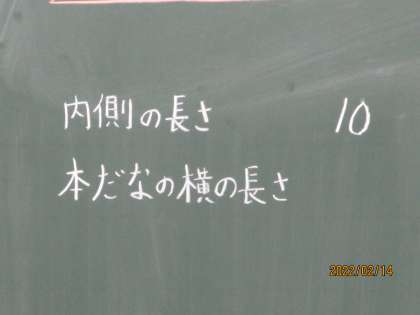 内側の長さ 10
本だなの横の長さ
2022/02/14